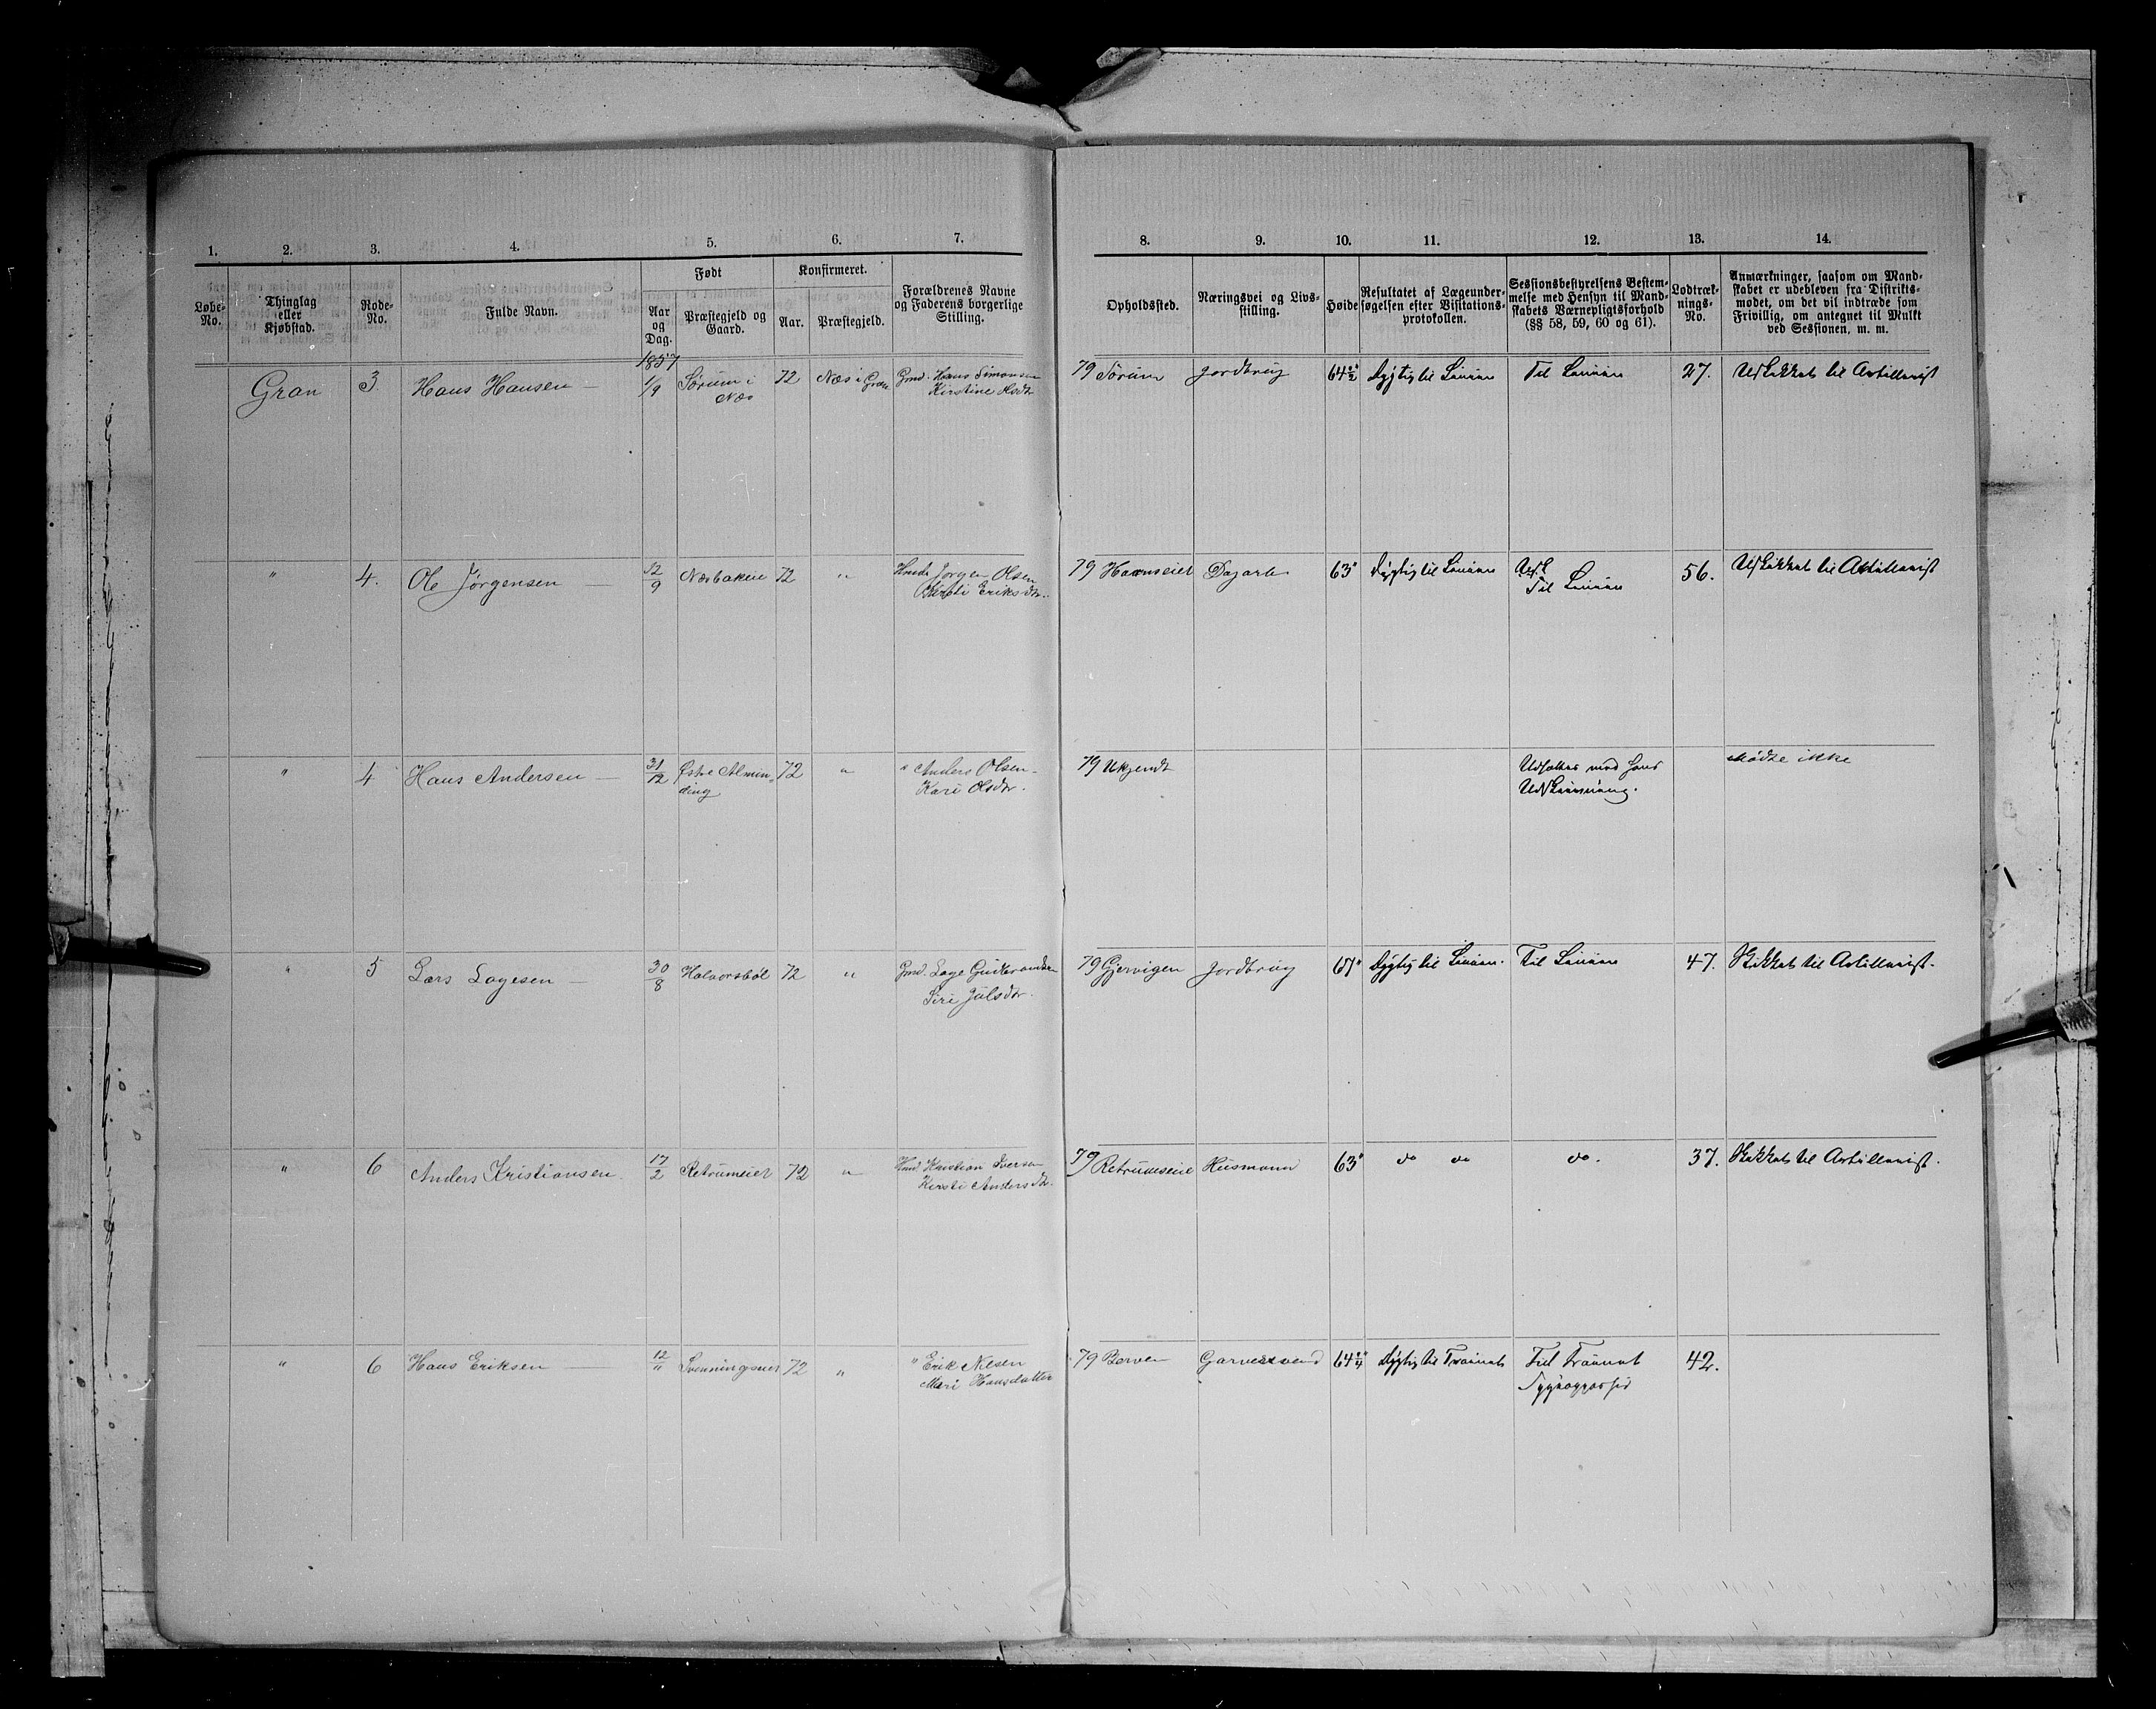 1. 2. 3. 4. 5. 6. 7. 8. 9. 10. 11. 12. 13. 14.
Løbe-No.
Thinglag eller Kjøbstad.
Rode-No.
Fulde Navn.
Født
Aar og Dag.
Præstegjeld og Gaard.
Konfirmeret.
Aar.
Præstegjeld.
Forældrenes Navne og Faderens borgerlige Stilling.
Opholdssted.
Næringsvei og Livsstilling.
Høide
Resultatet af Lægeundersøgelsen efter Visitationsprotokollen.
Sessionsbestyrelsens Bestemmelse med Hensyn til Mandskabets Værnepligtsforhold (§§ 58, 59, 60 og 61).
Lodtræknings-No.
Anmærkninger, saasom om Mandskabet er udebleven fra Distriktsmødet, om det vil indtræde som Frivillig, om antegnet til Mulkt ved Sessionen, m. m.
1857
Gran 3 Hans Hansen 1/9 Sørum i 72 Næs i Gran Gmd. Hans Simonsen 79 Sørum Jordbrug 64 2/2" Dygtig til Linien Til Linien 27. Uskikket til Artillerist
Næs Kirstine Hsdtr
" 4. Ole Jørgensen 12/9 Næsbakeie 72 " Hmd. Jørgen Olsen 79 Dagarb 63" Dygtig til Linien 56. Uskikket til Artillerist
Kirsti Eriksdtr. Til Linien
" 4 Hans Andersen 31/12 Østre Almin- 72 " " Anders Olsen 79 Ukjendt Udsættes med hans Mødte ikke
ding Kari Olsdtr. Udskrivning.
" 5 Lars Lagesen 30/8 Halvorsbøl 72 " Gmd. Lage Gudbrandsen 79 Gjervigen Jordbrug 67" Dygtig til Linien. Til Linien 47. Skikket til Artillerist.
Siri Julsdtr.
" 6 Anders Kristiansen 17/2 Retrumeiet 72 " Hmd Kristian Iversen 79 Retrumseie Husmand 63" do do do. 37. Skikket til Artillerist.
Kirsti Andersdtr.
" 6 Hans Eriksen 12/11 Svenningseiet 72 " " Erik Nilsen 79 Berven Garversvend 64 2/4" Dygtig til Trainet Til Trainet 42.
Mari Hansdatter Sygeoppasser